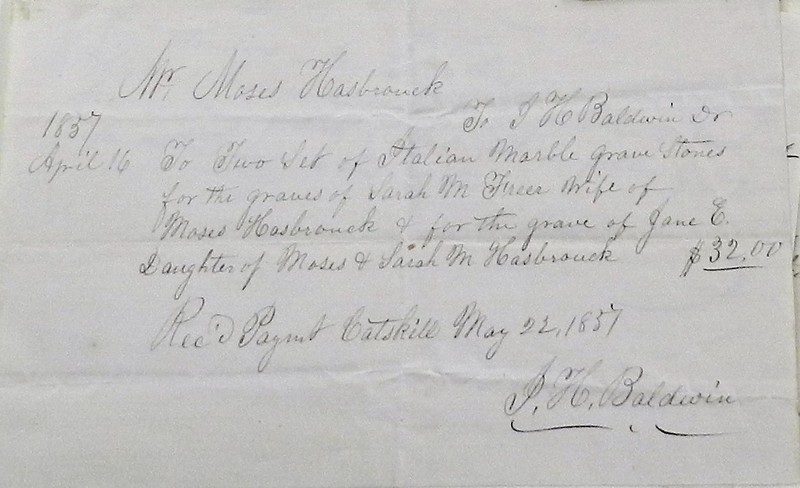 Mr. Moses Hasbrouck
To J H Baldwin Dr
1857
April 16 To Two Set of Italian Marble Grave Stones
for the graves of Sarah M Freer Wife of
Moses Hasbrouck & for the grave of Jane E.
Daughter of Moses & Sarah M Hasbrouck $32.00
Rec'd Paymt Catskill May 22, 1857
J. H. Baldwin